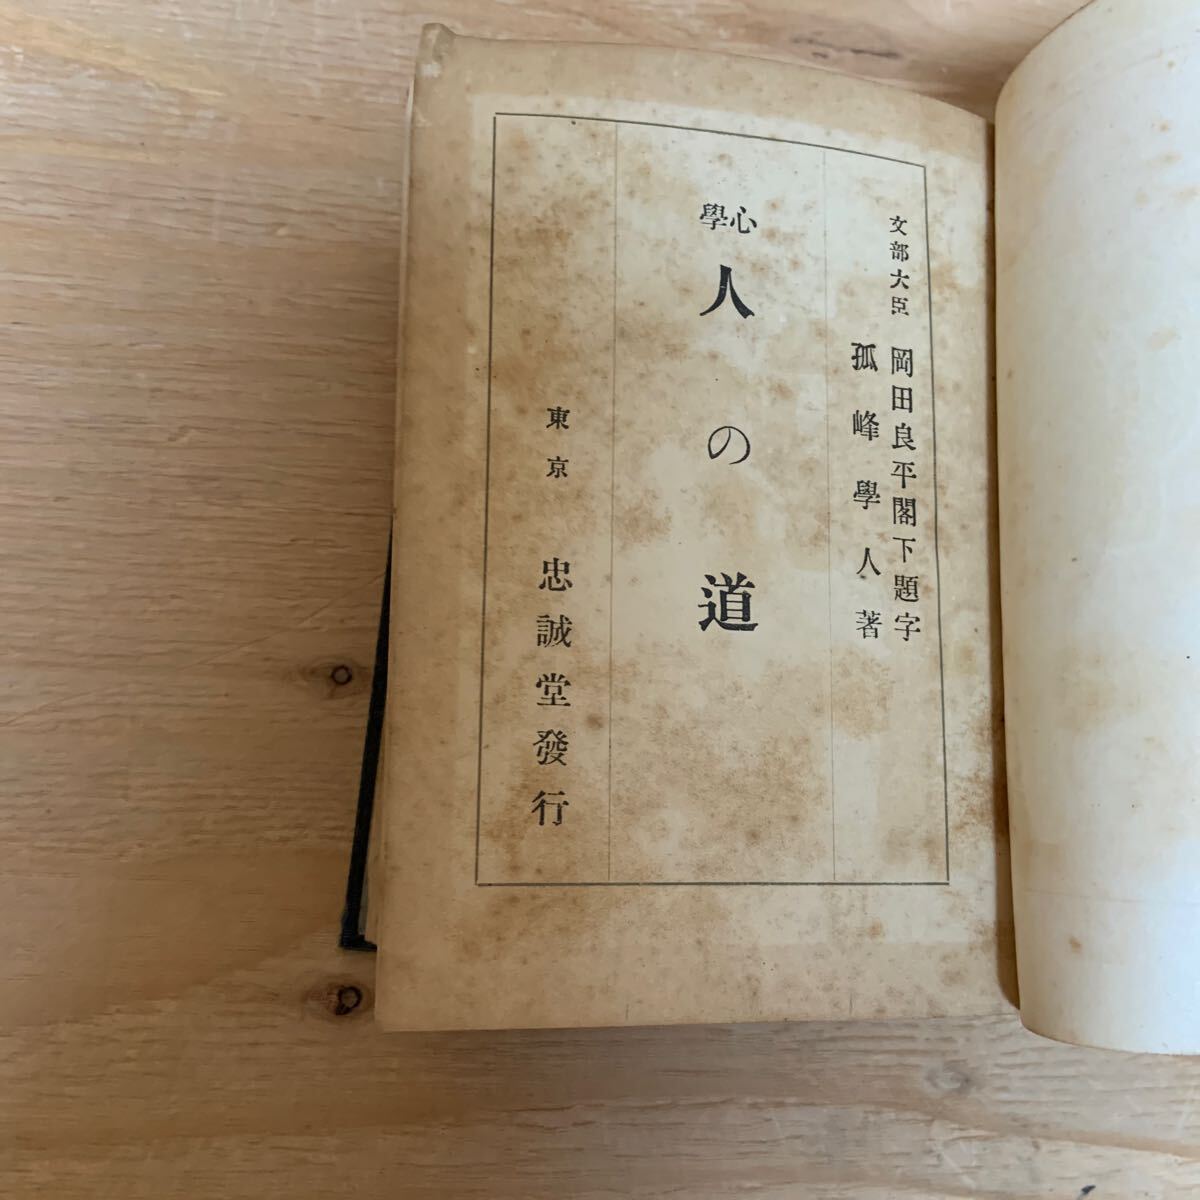 文部大臣 岡田良平閣下題字
孤峰學人著
心學
人の道
東京 忠誠堂發行